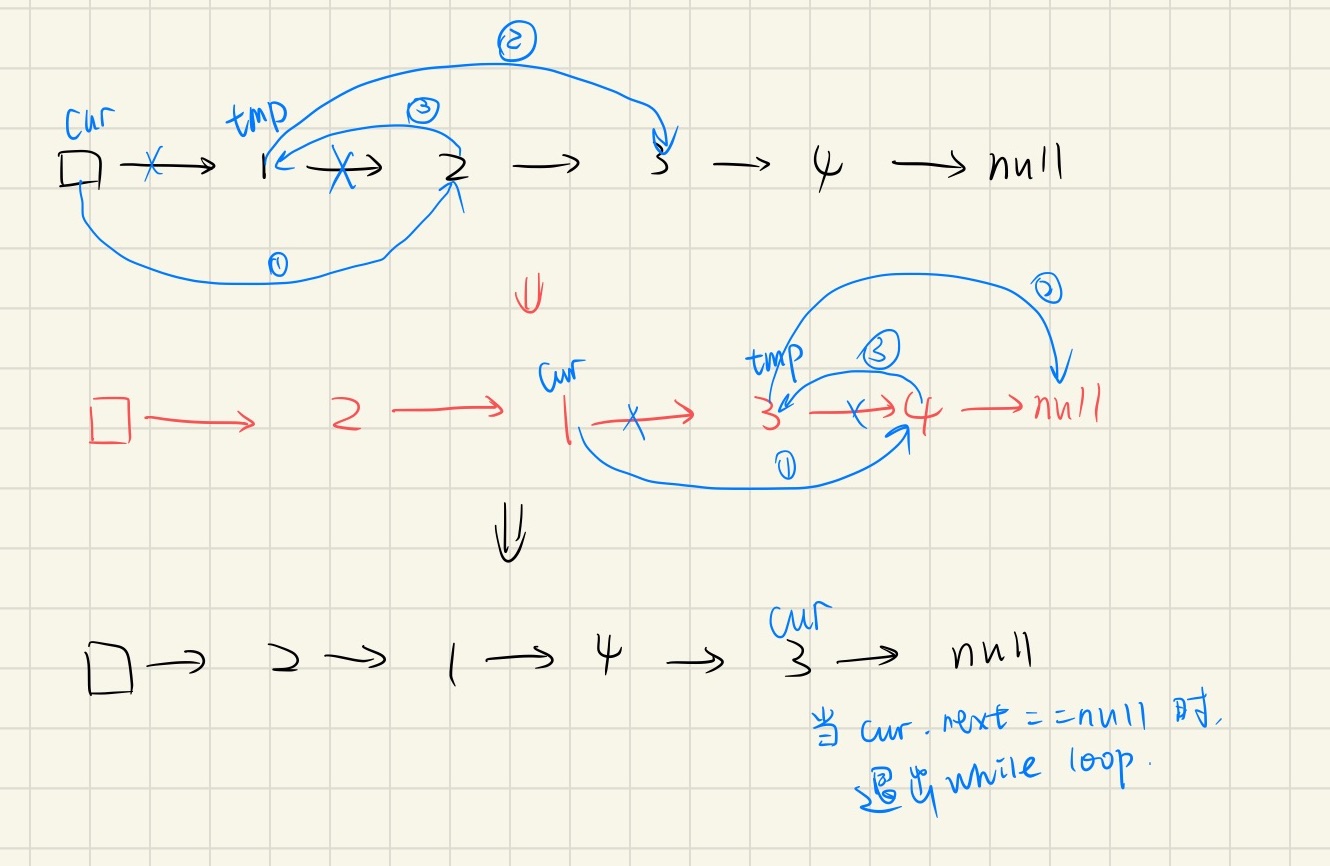 ②
cur tmp ③
□ → 1 → 2 → 3 → 4 → null
①
⇓
②
cur tmp ③
□ → 2 → 1 → 3 → 4 → null
①
⇓
cur
□ → 2 → 1 → 4 → 3 → null
当 cur.next ==null 时,
退出 while loop.